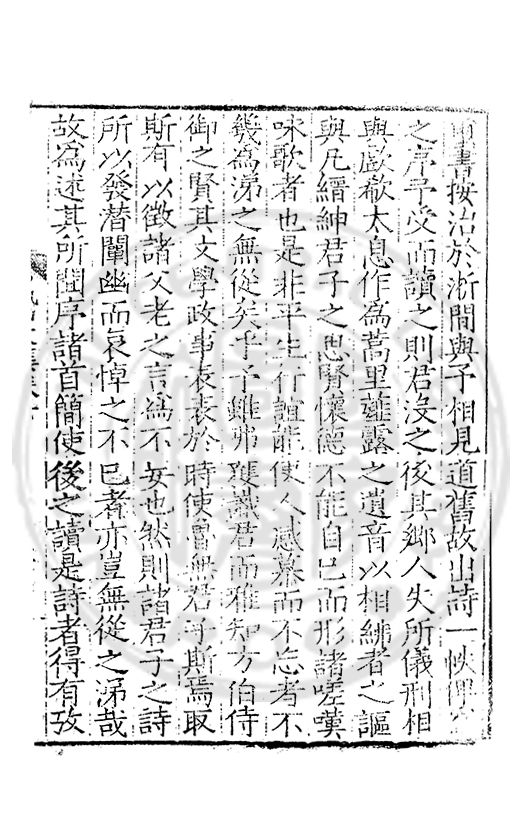 書按治於浙間與予相見道舊故出詩一帙俾
之序予受而讀之則君沒之後其鄉人失所儀刑相
與歔欷太息作為蒿里薤露之遺音以相紼者之謳
與凡縉紳君子之思賢懷德不能自已而形諸嗟嘆
咏歌者也是非平生行誼能使人感慕而不忘者不
幾為涕之無從矣乎予雖弗獲識君而雅知方伯侍
御之賢其文學政事表表於時使魯無君子斯焉取
斯有以徵諸父老之言為不妄也然則諸君子之詩
所以發潛闡幽而哀悼之不已者亦豈無從之涕哉
故為述其所聞序諸首簡使後之讀是詩者得有攷